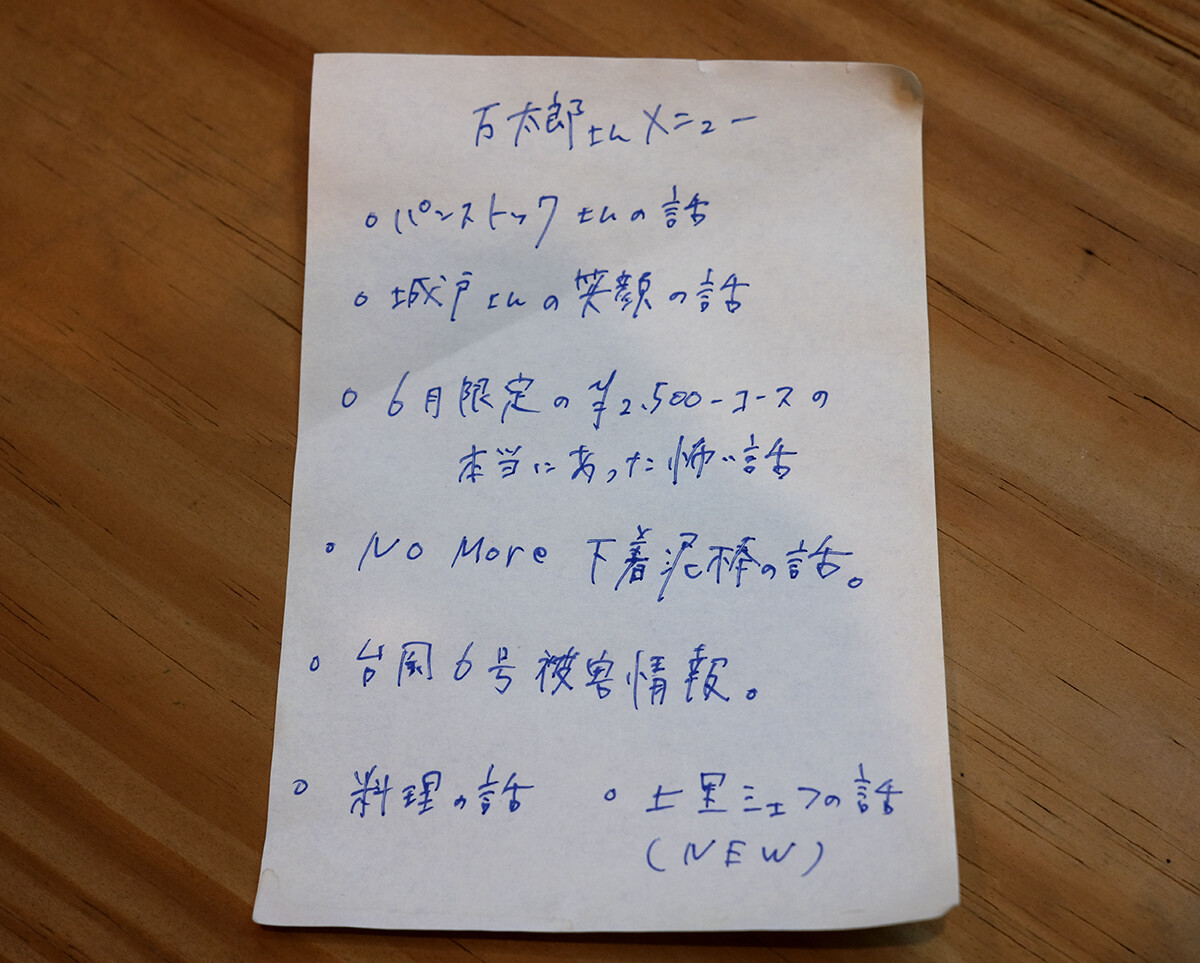 万太郎さんメニュー
○ パンストックさんの話
○ 城戸さんの笑顔の話
○ 6月限定の¥2,500-コースの
本当にあった怖い話
○ No More 下着泥棒の話。
○ 台風6号被害情報。
○ 料理の話 ○ 土里シェフの話
(NEW)